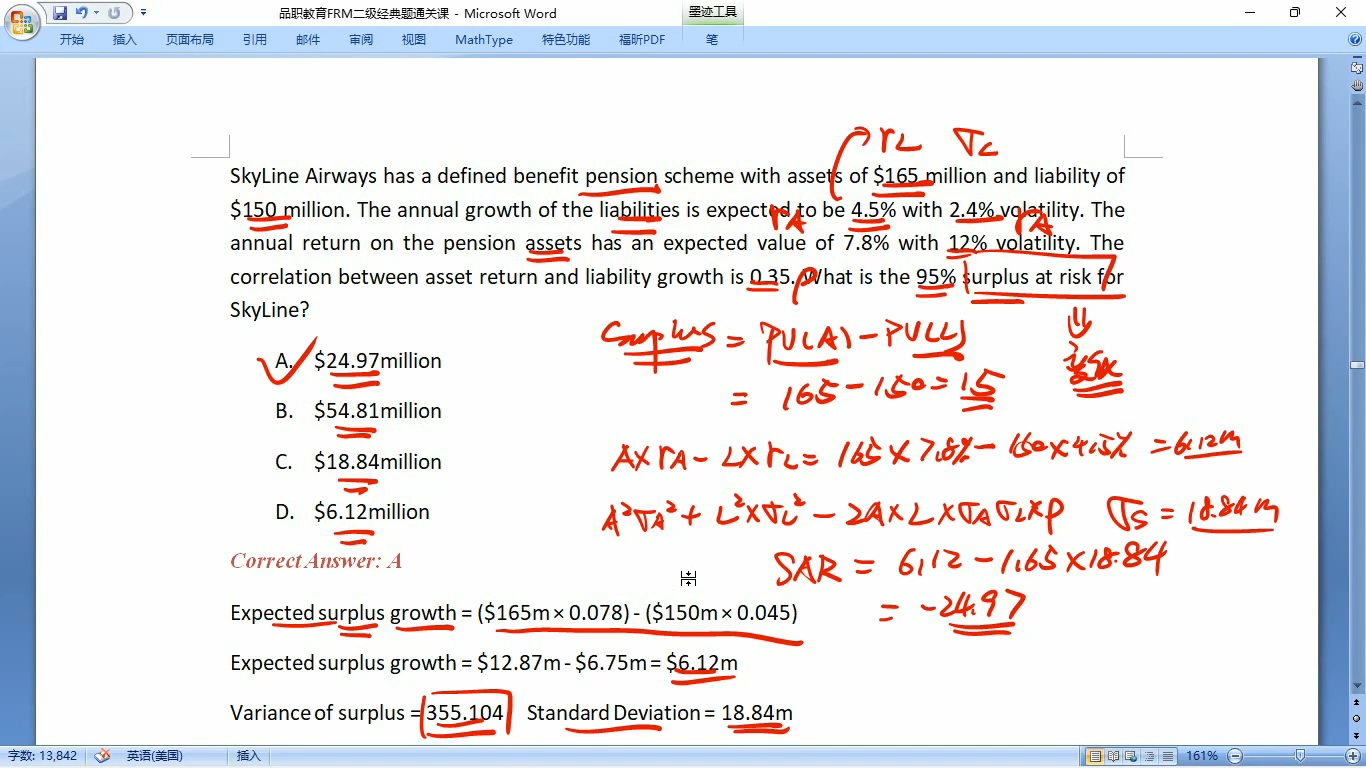 品职教育FRM二级经典题通关课 - Microsoft Word
墨迹工具
开始 插入 页面布局 引用 邮件 审阅 视图 MathType 特色功能 福昕PDF 笔
rL σL
SkyLine Airways has a defined benefit pension scheme with assets of $165 million and liability of
$150 million. The annual growth of the liabilities is expected to be 4.5% with 2.4% volatility. The
rA σA
annual return on the pension assets has an expected value of 7.8% with 12% volatility. The
correlation between asset return and liability growth is 0.35. What is the 95% surplus at risk for
ρ
SkyLine?
Surplus = PV(A) - PV(L)
A. $24.97million
= 165 - 150 = 15
B. $54.81million
A×rA - L×rL = 165×7.8% - 150×4.5% = 6.12m
C. $18.84million
A²σA² + L²×σL² - 2A×L×σAσL×ρ σS = 18.84m
D. $6.12million
Correct Answer: A
SAR = 6.12 - 1.65×18.84
= -24.97
Expected surplus growth = ($165m × 0.078) - ($150m × 0.045)
Expected surplus growth = $12.87m - $6.75m = $6.12m
Variance of surplus = 355.104 Standard Deviation = 18.84m
字数: 13,842 英语(美国) 插入 161%